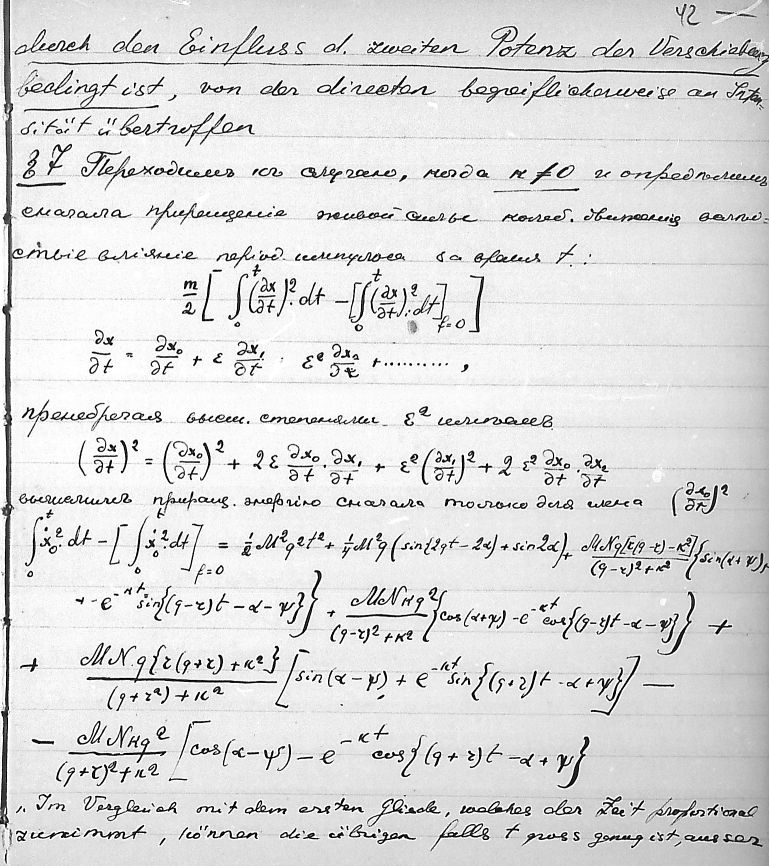 42 —
durch den Einfluss d. zweiten Potenz der Verschiebung
bedingt ist, von der directen begreiflicherweise an Inten-
sität übertroffen
§ 7 Переходимъ къ случаю, когда κ ≠ 0 и опредѣлимъ
сначала приращеніе живой силы колеб. движенія вслѣд-
ствіе вліянія період. импульса за время t.:
m/2 [ ∫₀ᵗ (∂x/∂t)².dt − [∫₀ᵗ (∂x/∂t)².dt]_{f=0} ]
∂x/∂t = ∂x₀/∂t + ε ∂x₁/∂t . ε² ∂x₂/∂t + ........., 
пренебрегая высш. степенями ε² имѣемъ
(∂x/∂t)² = (∂x₀/∂t)² + 2ε ∂x₀/∂t . ∂x₁/∂t + ε² (∂x₁/∂t)² + 2 ε² ∂x₀/∂t . ∂x₂/∂t
вычислимъ приращ. энергіи сначала только для члена (∂x₀/∂t)²
∫₀ᵗ ẋ₀².dt − [∫₀ᵗ ẋ₀².dt]_{f=0} = ½ M²q²t² + ¼ M²q (sin(2qt − 2α) + sin 2α) + MNq[r(q−r) − κ²]/((q−r)² + κ²) { sin(α+ψ) +
+ e^{−κt} sin{(q−r)t − α − ψ}} + MNκq²/((q−r)² + κ²) {cos(α+ψ) − e^{−κt} cos{(q−r)t − α − ψ}} +
+ MN.q{r(q+r) + κ²}/((q+r²) + κ²) [sin(α−ψ) + e^{−κt} sin{(q+r)t − α + ψ}] —
− MNκq²/((q+r)² + κ²) [cos(α−ψ) − e^{−κt} cos{(q+r)t − α + ψ}
Im Vergleich mit dem ersten Gliede, welches der Zeit proportional
zunimmt, können die übrigen falls t gross genug ist, ausser